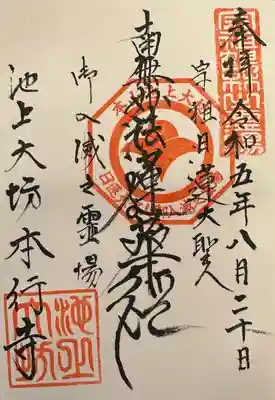 奉拝 令和五年八月二十日
宗祖日蓮大聖人
南無妙法蓮華経
御入滅之霊場
池上大坊本行寺
池上
大坊